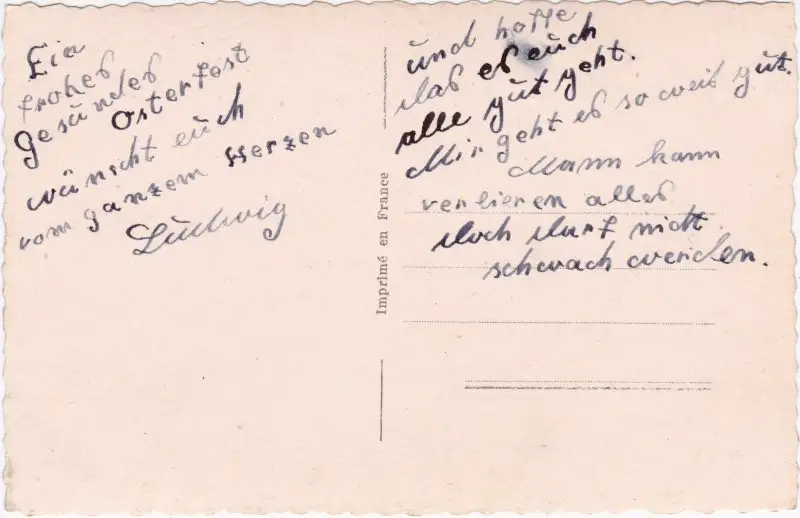 Ein
frohes
gesundes
Osterfest
wünscht euch
vom ganzem Herzen
Ludwig
Imprimé en France
und hoffe
das es euch
alle gut geht.
Mir geht es so weit gut.
Mann kann
verlieren alles
doch darf nicht
schwach werden.